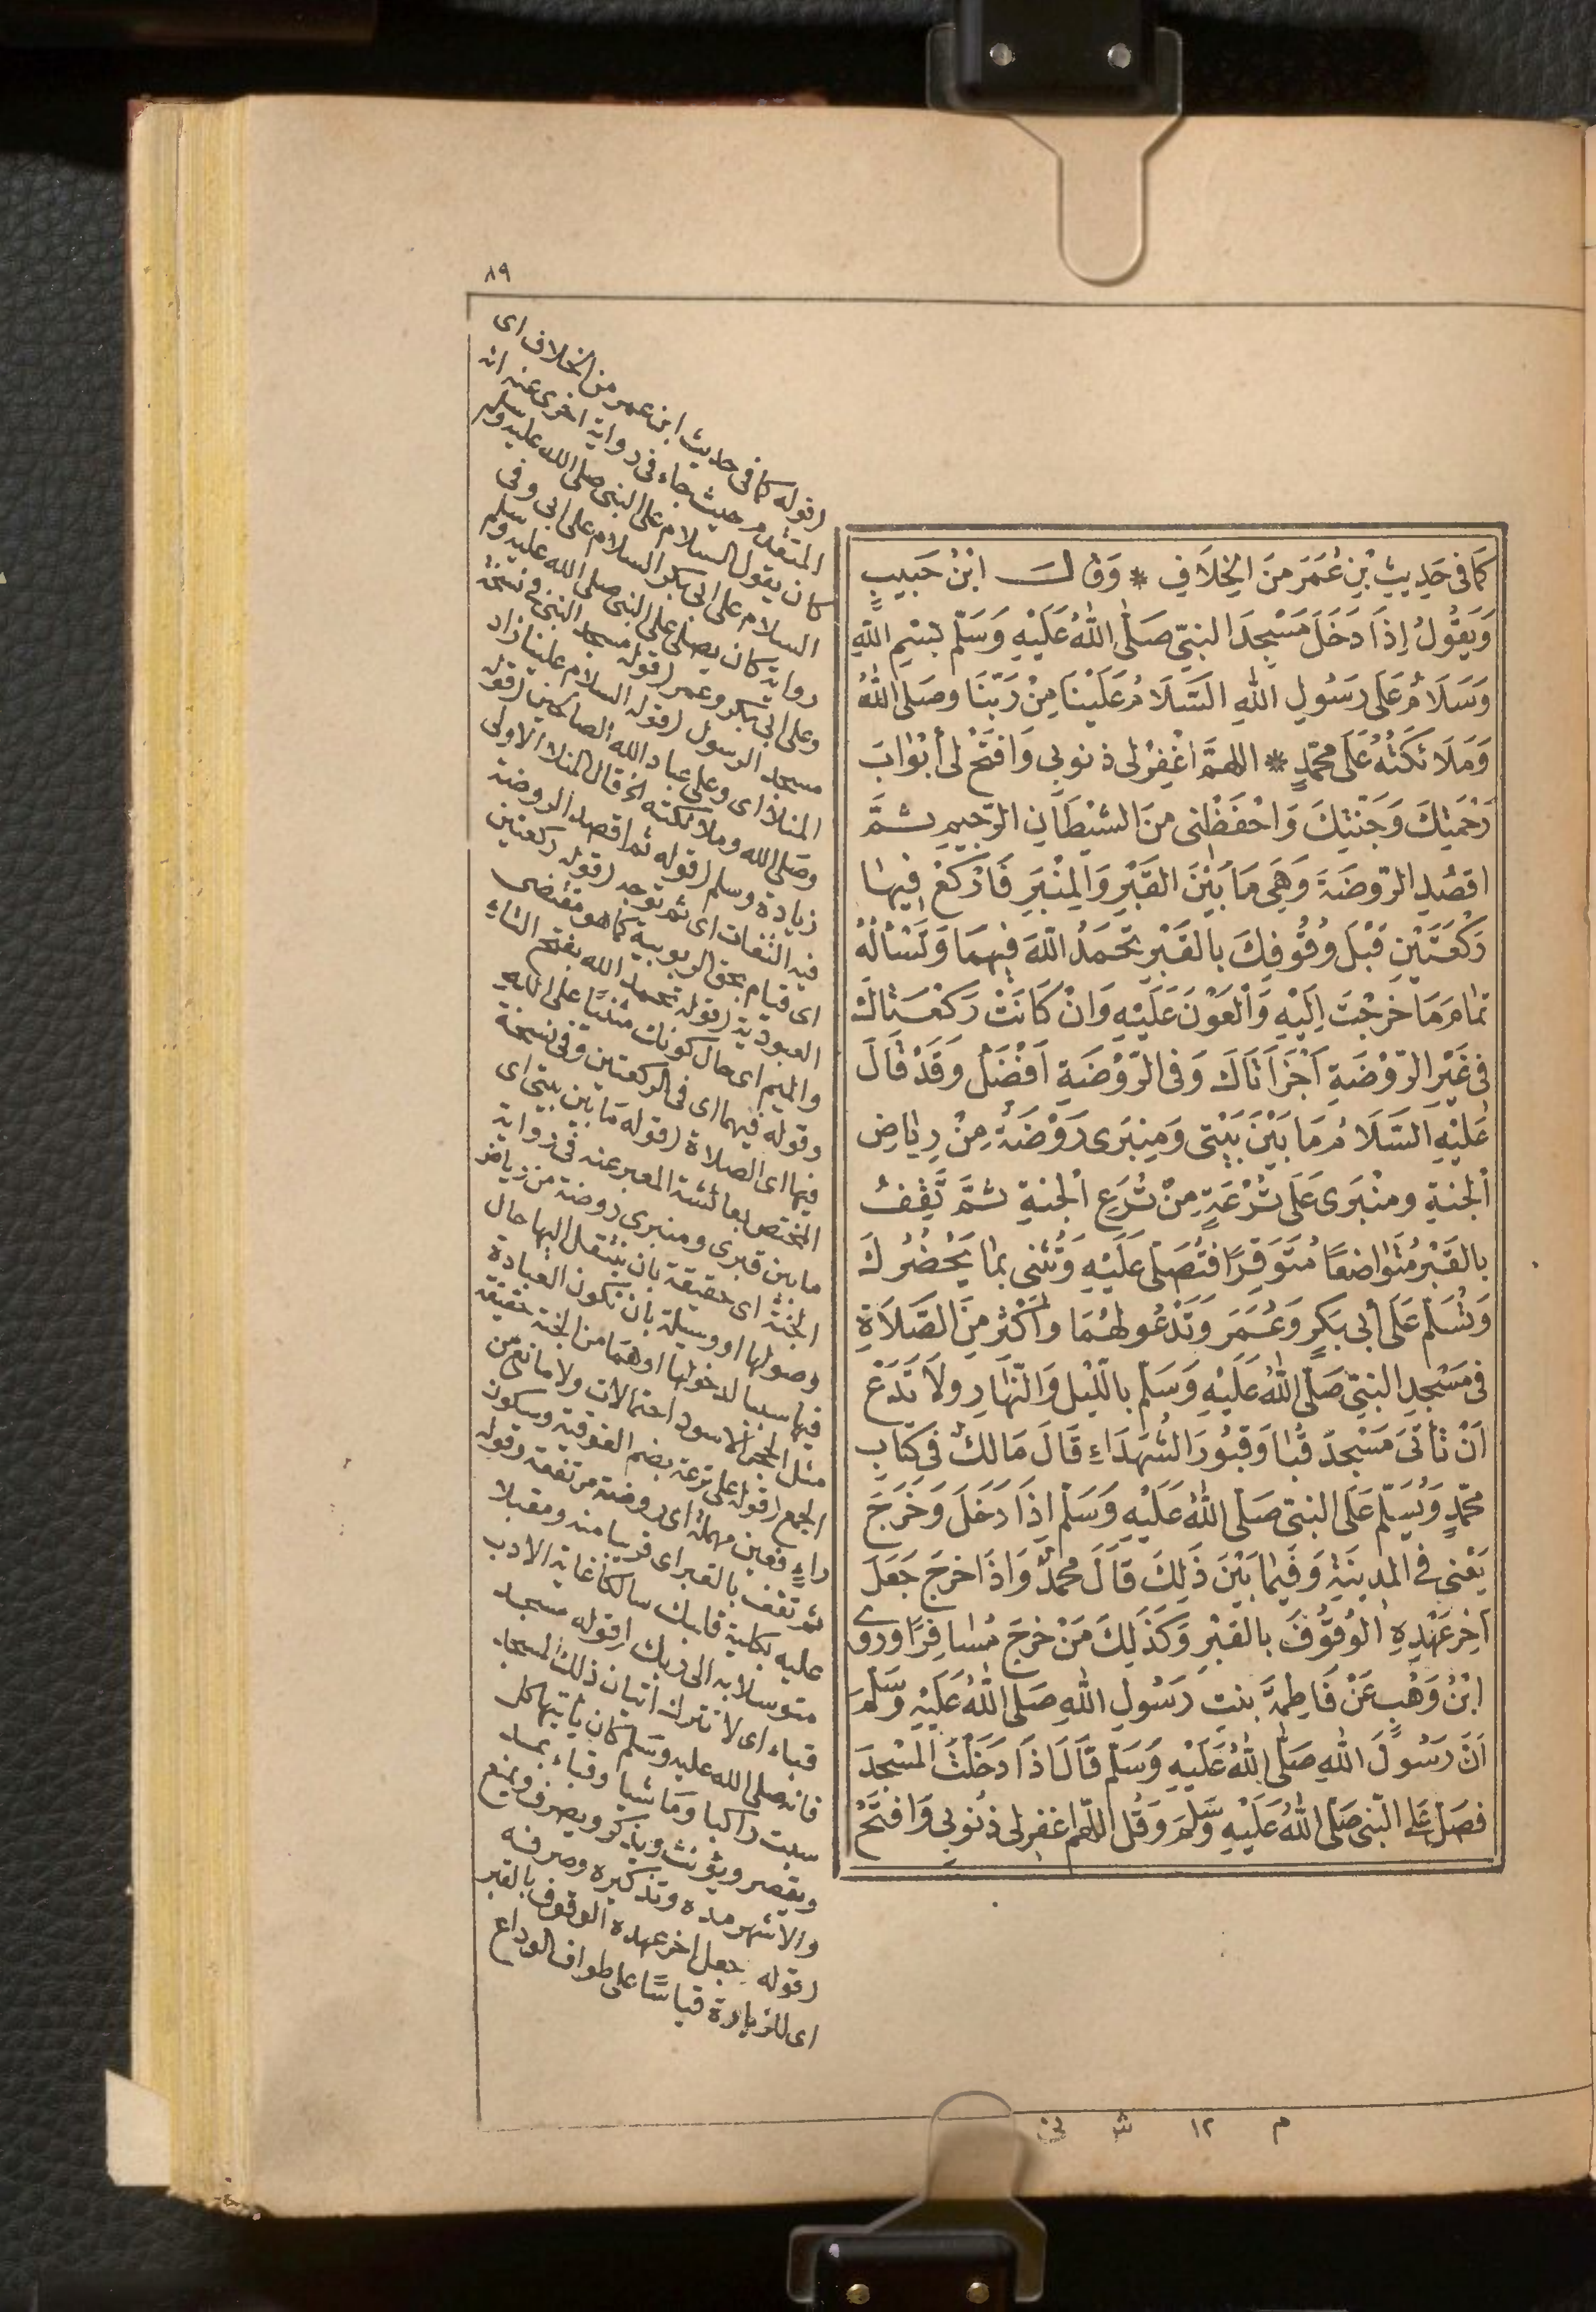 ٨٩
كَمَا فى حَدِيثِ بْنِ عُمَرَ مِنَ الخِلَافِ * وَقالَ ابْنُ حَبيبٍ
وَيَقُولُ إِذَا دَخَلَ مَسْجِدَ النبىِّ صَلَّى اللهُ عَلَيْهِ وَسَلَّمَ بسْمِ اللهِ
وَسَلَامٌ عَلَى رَسُولِ اللهِ السَّلَامُ عَلَيْنَا مِنْ رَبِّنَا وصَلى اللهُ
وَمَلَائكَتُهُ عَلَى محمَّدٍ * اللهمَّ اغْفِرْ لى ذنوبى وَافتَحْ لى أبْوَابَ
رَحْمَتِكَ وَجَنَّتِكَ وَاحْفَظْنى مِنَ الشيْطَانِ الرَّجِيمِ ثمَّ
اقصُدِ الرَّوضَةَ وَهِىَ مَا بَيْنَ القَبْرِ وَالمِنْبَرِ فَارْكَعْ فِيهَا
رَكْعَتَيْنِ قَبْلَ وُقُوفِكَ بالقَبْرِ تحْمَدُ اللهَ فيهِمَا وَتَسْأَلُهُ
تمامَ مَا خَرَجْتَ إلَيْهِ وَالْعَوْنَ عَلَيْهِ وَانْ كَانَتْ رَكْعَتَاكَ
فى غَيْرِ الرَّوْضَةِ أجْزَأتَاكَ وَفى الرَّوْضَةِ اَفْضَلُ وَقَدْ قَالَ
عَلَيْهِ السَّلَامُ مَا بَيْنَ بَيْتى وَمِنبَرِى رَوْضَةٌ مِنْ رِيَاضِ
الجنةِ ومنْبَرِى عَلَى تُرْعَةٍ مِنْ تُرَعِ الجنةِ ثمَّ تَقِفُ
بالقَبْرِ مُتَوَاضعًا مُتَوَقِّرًا فتُصَلِّى عَلَيْهِ وَتُثْنى بمَا يَحْضُرُكَ
وَتُسَلِّمُ عَلَى أبى بَكرٍ وَعُمَرَ وَتَدْعُو لهُمَا وَأَكْثِرْ مِنَ الصَّلَاةِ
فى مَسْجِدِ النبىِّ صَلَّى اللهُ عَلَيْهِ وَسَلَّمَ باللَّيْلِ وَالنَّهَارِ وَلَا تَدَعْ
اَنْ تَأتىَ مَسْجِدَ قُبَا وَقبُورَ الشُّهَدَاءِ قَالَ مَالكٌ فى كِتَابِ
محمَّدٍ وَيُسَلِّمُ عَلَى النبىِّ صَلَّى اللهُ عَلَيْهِ وَسَلَّمَ اِذَا دَخَلَ وَخَرَجَ
يَعْنى فى المدِينَةِ وَفيمَا بَيْنَ ذَلِكَ قَالَ محمدٌ وَاذَا خرجَ جَعَلَ
آخِرَ عَهْدِهِ الوُقُوفَ بالقبْرِ وَكَذَلِكَ مَنْ خرجَ مُسَافِرًا وروى
ابْنُ وَهْبٍ عَنْ فَاطِمَةَ بنتِ رَسُولِ اللهِ صَلَّى اللهُ عَلَيْهِ وَسَلَّمَ
اَنَّ رَسُولَ اللهِ صَلَّى اللهُ عَلَيْهِ وَسَلَّمَ قَالَ اذَا دَخَلْتَ المَسْجِدَ
فصَلِّ عَلَى النَّبىِّ صَلَّى اللهُ عَلَيْهِ وَسَلَّمَ وَقُلِ اللهُمَّ اغفِرْ لى ذنُوبى وَافتَحْ
(قوله كما فى حديث ابن عمر من الخلاف اى
المتقدم حيث جاء فى رواية اخرى عنه انه
كان يقول السلام على النبى صلى الله عليه وسلم
السلام على ابى بكر السلام على ابى وفى
رواية كان يصلى على النبى صلى الله عليه وسلم
وعلى ابى بكر وعمر (قوله مسجد النبى فى نسخة
مسجد الرسول (قوله السلام علينا زاد
المنلا اى وعلى عباد الله الصالحين (قوله
وصلى الله وملائكته الخ قال المنلا الاولى
زيادة وسلم (قوله ثم اقصد الروضة
فيه التفات اى ثم توجه (قوله ركعتين
اى قيام بحق الربوبية كما هو مقتضى
العبودية (قوله تحمد الله بفتح التاء
والميم اى حال كونك مثنيًا على الله
وقوله فيهما اى فى الركعتين وفى نسخة
فيها اى الصلاة (قوله ما بين بيتى اى
المختص بعائشة المعبر عنه فى رواية
ما بين قبرى ومنبرى روضة من رياض
الجنة اى حقيقة بان ينتقل اليها حال
وصولها او وسيلة بان تكون العبادة
فيها سببا لدخولها او هما من الجنة حقيقة
مثل الحجر الاسود احتمالات ولا مانع من
الجمع (قوله على ترعة بضم الفوقية وسكون
راء فعين مهملة اى روضة مرتفعة وقوله
ثم تقف بالقبر اى قريبا منه ومقبلا
عليه بكلية قلبك سالكا غاية الادب
متوسلا به الى ربك (قوله مسجد
قباء اى لا تترك اتيان ذلك المسجد
فانه صلى الله عليه وسلم كان ياتيها كل
سبت راكبا وماشيا وقباء بمد
ويقصر ويؤنث ويذكر ويصرف ويمنع
والاشهر مده وتذكيره وصرفه
(قوله جعل اخر عهده الوقوف بالقبر
اى للزيارة قياسًا على طواف الوداع
م ١٢ ش نى